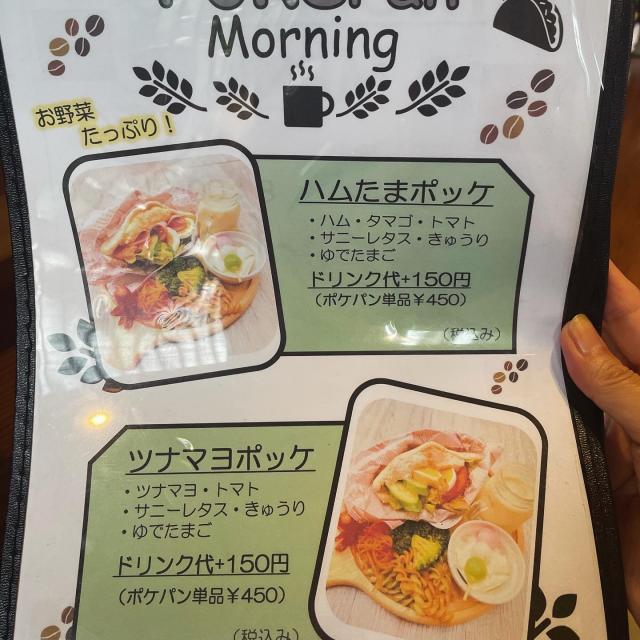 Morning
お野菜
たっぷり！
ハムたまポッケ
・ハム・タマゴ・トマト
・サニーレタス・きゅうり
・ゆでたまご
ドリンク代+150円
（ポケパン単品￥450）
（税込み）
ツナマヨポッケ
・ツナマヨ・トマト
・サニーレタス・きゅうり
・ゆでたまご
ドリンク代+150円
（ポケパン単品￥450）
（税込み）